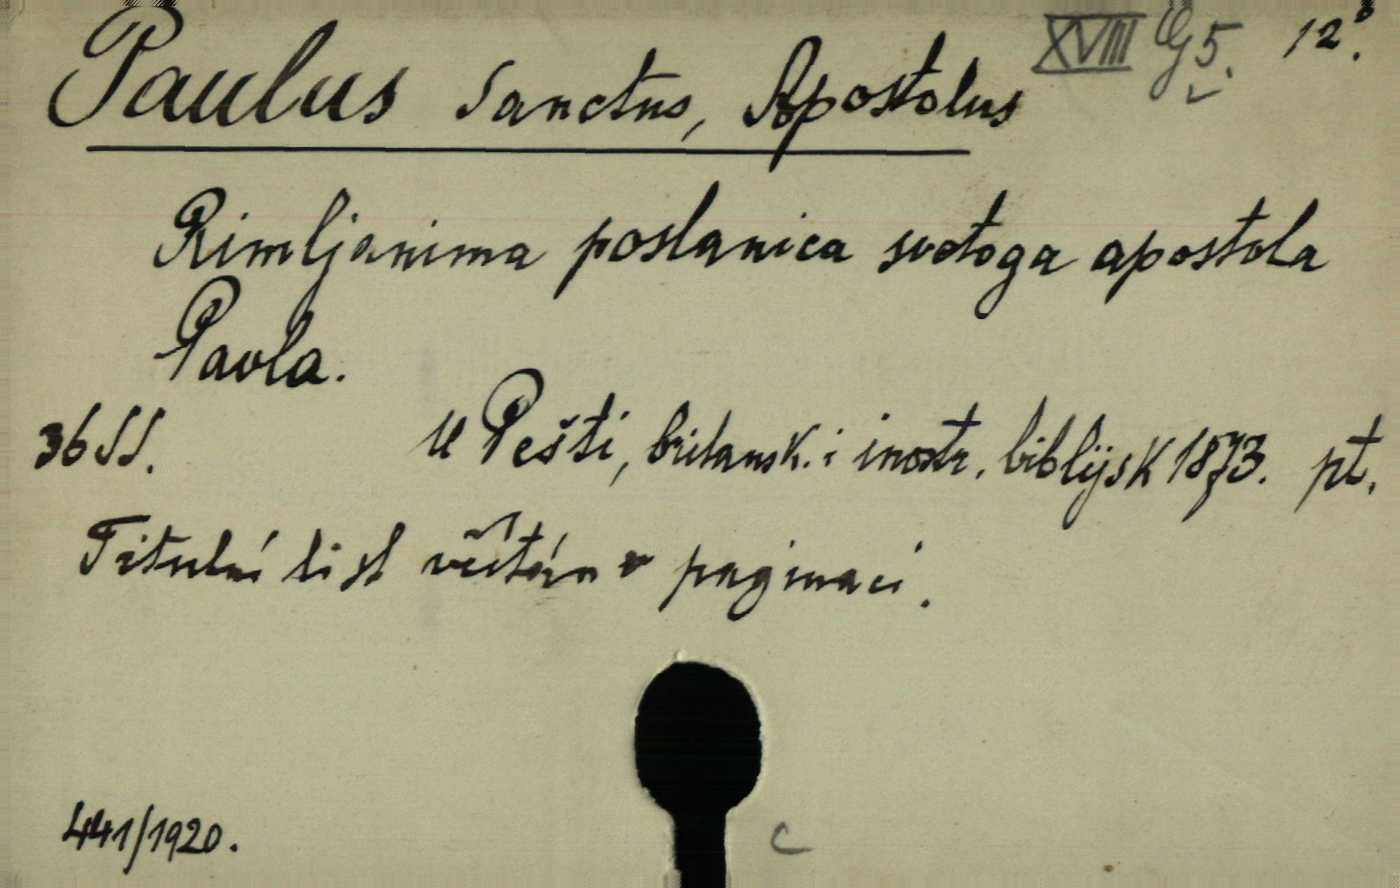 XVIII G 5. 12°.
Paulus Sanctus, Apostolus
Rimljanima poslanica svetoga apostola
Pavla.
36 SS. U Pešti, britansk. i inostr. biblijsk 1873. pt.
Titulní list včítán v paginaci.
441/1920.
c